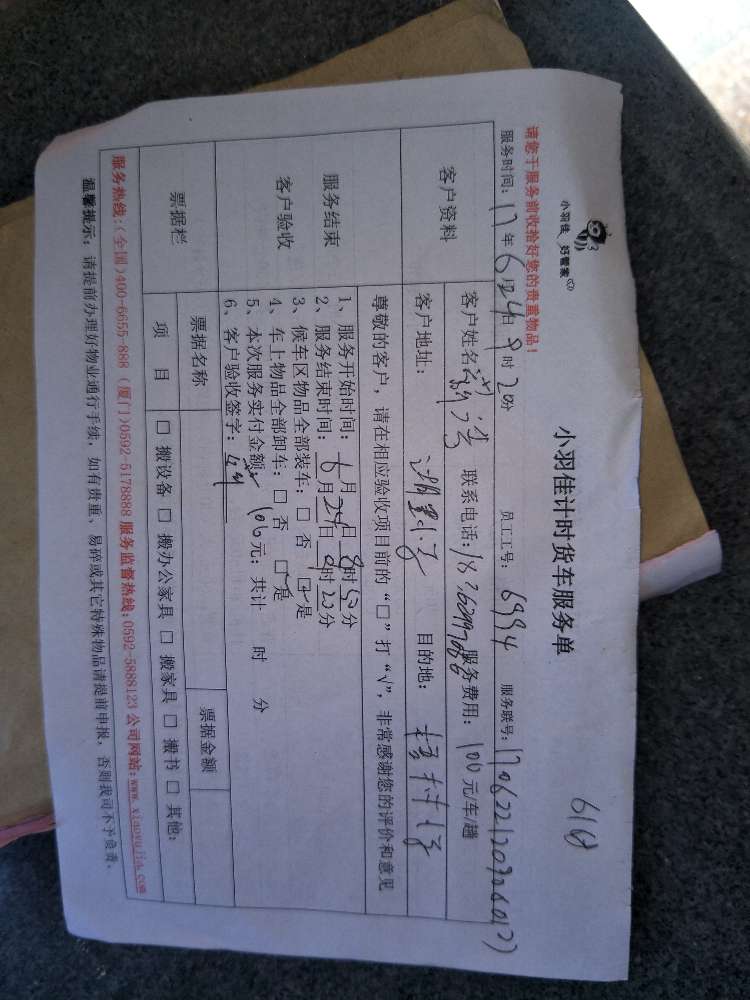 小羽佳 好管家
小羽佳计时货车服务单
请您于服务前收拾好您的贵重物品！
服务时间：17年6月24日9时20分 员工工号：6994 服务联号：
客户资料
客户姓名 联系电话： 服务费用：100元/车/趟
客户地址： 目的地：
服务结束
客户验收
尊敬的客户，请在相应验收项目前的“□”打“√”，非常感谢您的评价和意见
1、服务开始时间：6月 日8时50分
2、服务结束时间：6月24日9时20分
3、候车区物品全部装车：□ 否 □ 是
4、车上物品全部卸车：□ 否 □ 是
5、本次服务实付金额：100元；共计 时 分
6、客户验收签字：
票据栏
票据名称 票据金额
项 目 □ 搬设备 □ 搬办公家具 □ 搬家具 □ 搬书 □ 其他：
服务热线：(全国)400-6655-888 (厦门)0592-5178888 服务监督热线：0592-5888123 公司网站：www.xiaoyujia.com
温馨提示：请提前办理好物业通行手续，如有贵重、易碎或其它特殊物品请提前申报，否则我司不予负责。